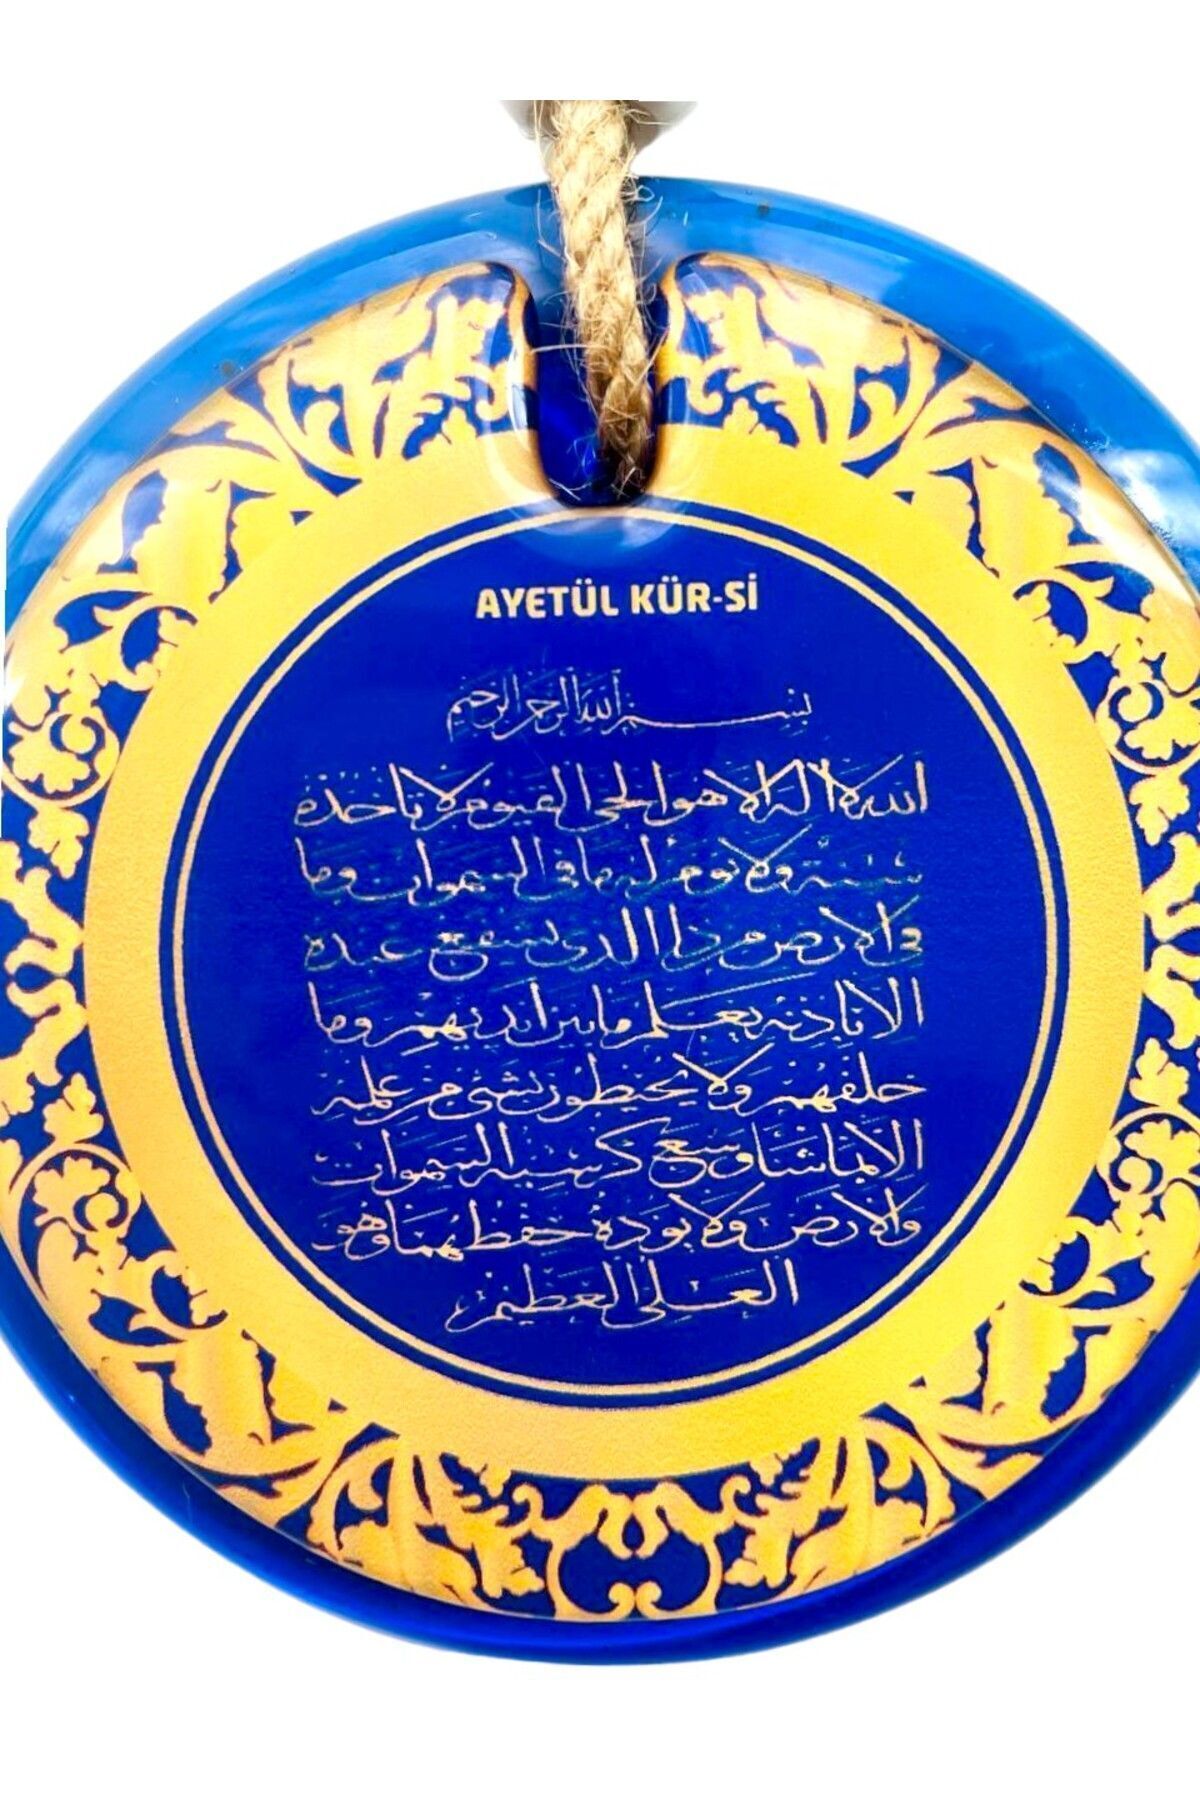 AYETÜL KÜR-Sİ
بسم الله الرحمن الرحيم
الله لا اله الا هو الحي القيوم لا تاخذه
سنة ولا نوم له ما في السموات وما
في الارض من ذا الذي يشفع عنده
الا باذنه يعلم ما بين ايديهم وما
خلفهم ولا يحيطون بشئ من علمه
الا بما شاء وسع كرسيه السموات
والارض ولا يؤده حفظهما وهو
العلي العظيم